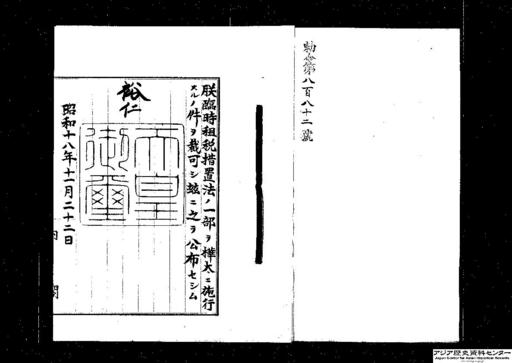 勅令第八百八十二號
朕臨時租税措置法ノ一部ヲ樺太ニ施行
スルノ件ヲ裁可シ玆ニ之ヲ公布セシム
裕仁
天皇御璽
昭和十八年十一月二十二日
内閣
アジア歴史資料センター
Japan Center for Asian Historical Records